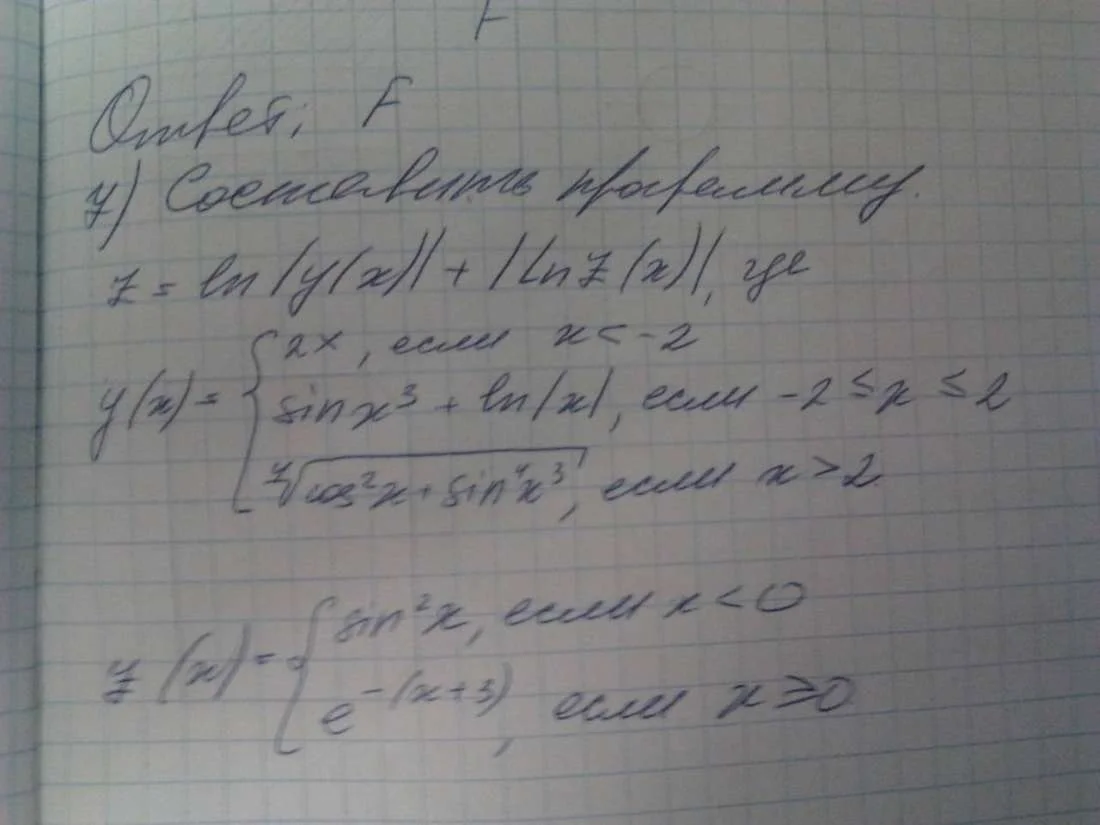 F
Ответ: F
7) Составить программу.
z = ln|y(x)| + |ln z(x)|, где
y(x) = { 2x, если x < -2
sin x³ + ln|x|, если -2 ≤ x ≤ 2
⁴√(cos²x + sin⁴x³), если x > 2
z(x) = { sin²x, если x < 0
e^-(x+3), если x ≥ 0